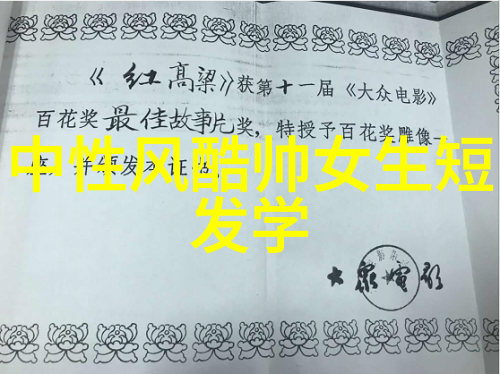 《红高粱》获第十一届《大众电影》
百花奖最佳故事片奖，特授予百花奖雕像一
座，并颁发本证书。
中性风酷帅女生短
发学
大众电影